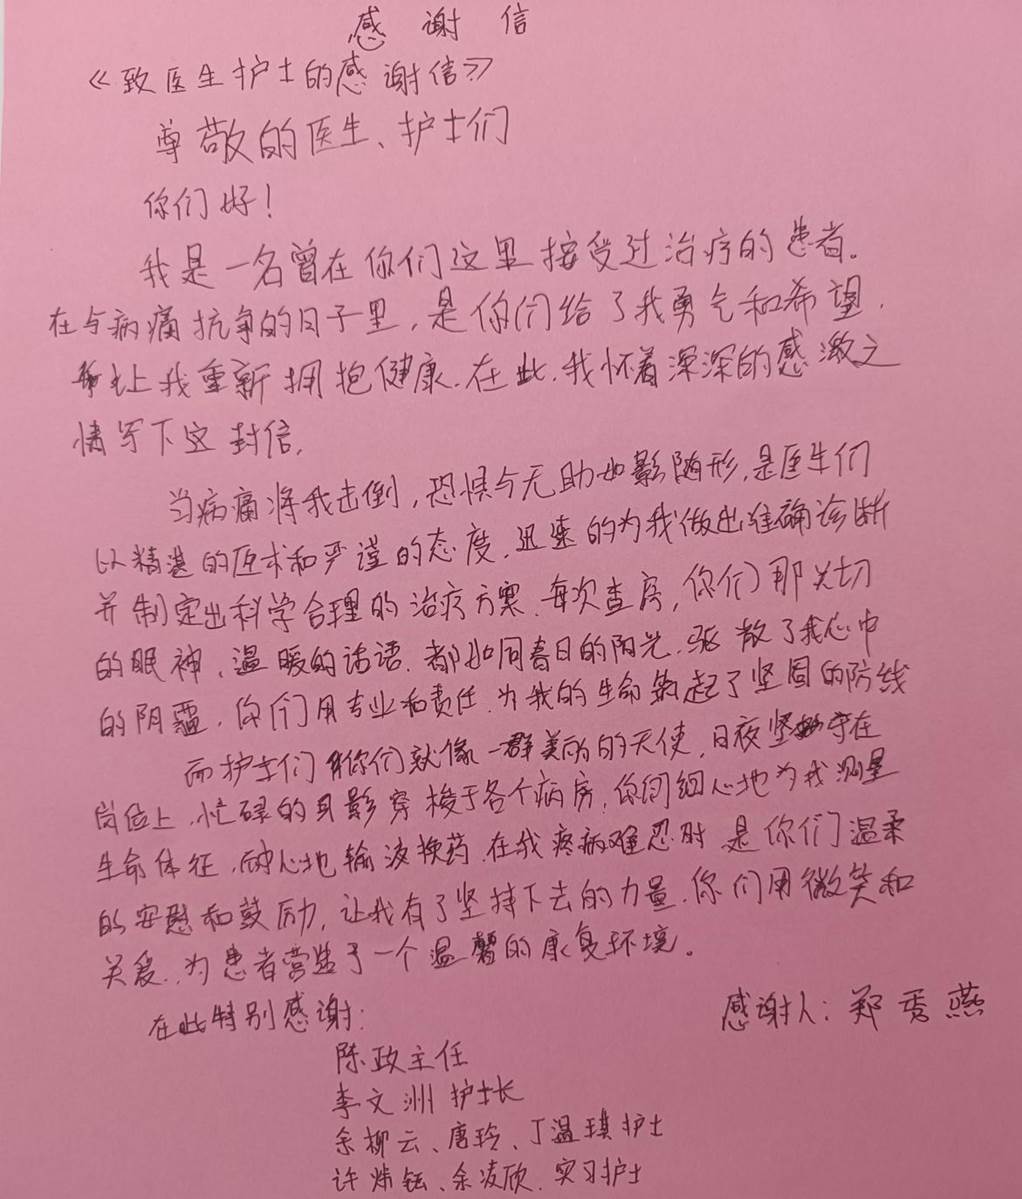 感谢信
《致医生护士的感谢信》
尊敬的医生、护士们
你们好!
我是一名曾在你们这里接受过治疗的患者。
在与病痛抗争的日子里,是你们给了我勇气和希望.
让我重新拥抱健康.在此.我怀着深深的感激之
情写下这封信.
当病痛将我击倒,恐惧与无助如影随形,是医生们
以精湛的医术和严谨的态度.迅速的为我做出准确诊断
并制定出科学合理的治疗方案.每次查房,你们那关切
的眼神、温暖的话语.都如同春日的阳光.驱散了我心中
的阴霾.你们用专业和责任.为我的生命筑起了坚固的防线
而护士们你们就像一群美丽的天使.日夜坚守在
岗位上.忙碌的身影穿梭于各个病房.你们细心地为我测量
生命体征.耐心地输液换药.在我疼痛难忍时.是你们温柔
的安慰和鼓励,让我有了坚持下去的力量.你们用微笑和
关爱.为患者营造了一个温馨的康复环境。
在此特别感谢:
感谢人:郑秀燕
陈政主任
李文洲护士长
余柳云、唐玲、丁温琪护士
许炜钰、余凌欣.实习护士